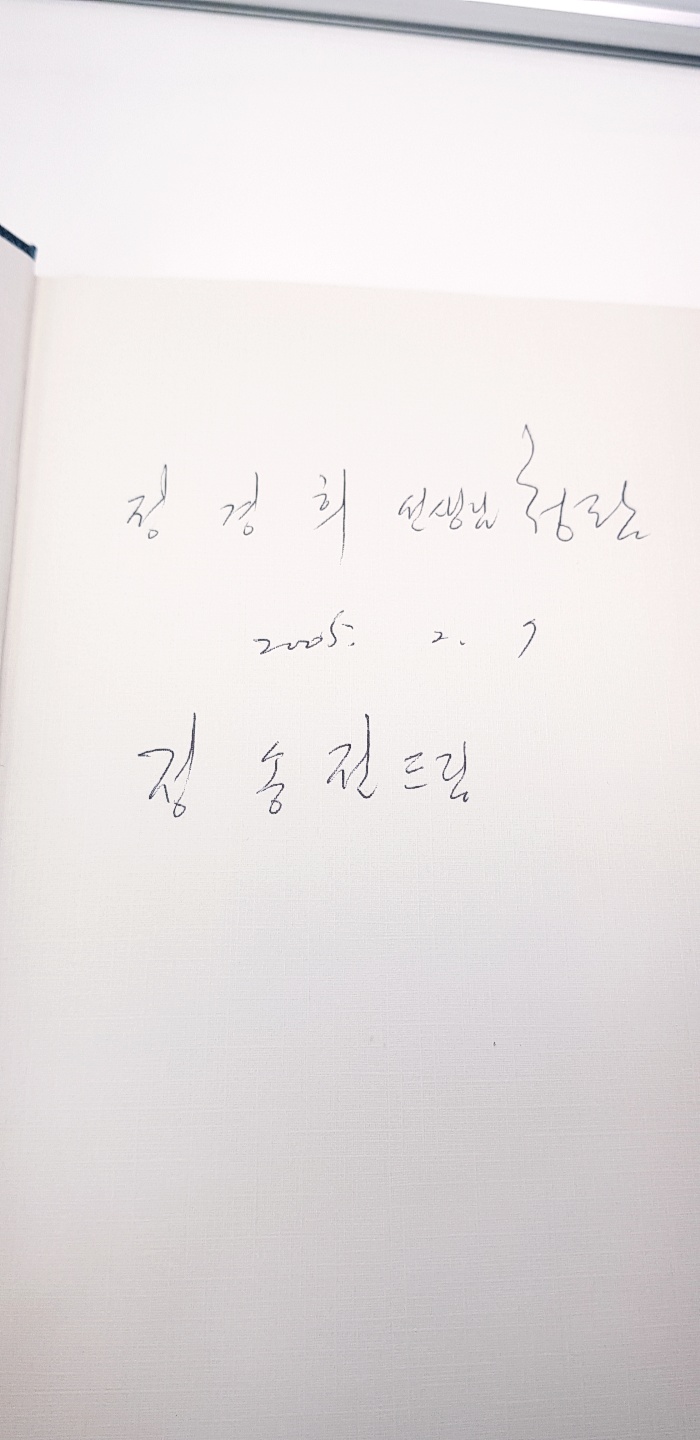 정경희 선생님 청람
2005. 2. 7
정송전 드림